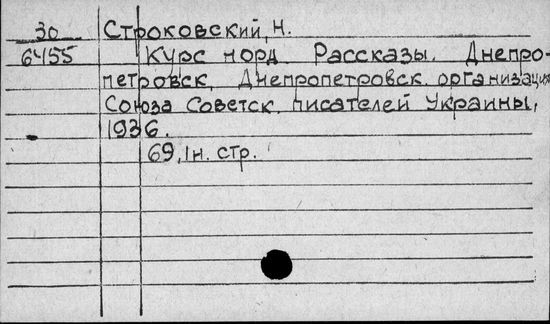 30 Строковский, Н.
6455 Курс норд Рассказы. Днепро-
петровск, Днепропетровск. организация
Союза Советск. писателей Украины,
1936.
69, 1н. стр.